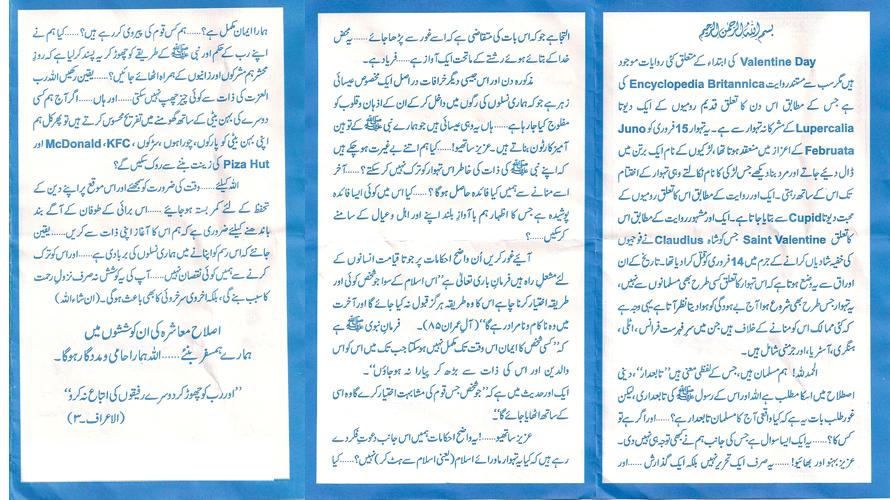 بسم اللہ الرحمن الرحیم
Valentine Day کی ابتداء کے متعلق کئی روایات موجود
ہیں مگر سب سے مستند روایت Encyclopedia Britannica کی
ہے جس کے مطابق اس دن کا تعلق قدیم رومیوں کے ایک دیوتا
Lupercalia کے مشرکانہ تہوار سے ہے۔ یہ تہوار 15 فروری کو Juno
Februata کے اعزاز میں منعقد ہوتا تھا، لڑکیوں کے نام ایک برتن میں
ڈال دیئے جاتے اور مرد بنا دیکھے جس لڑکی کا نام نکالتے وہی تہوار کے اختتام
تک اس کے ساتھ رہتی۔ ایک اور روایت کے مطابق اس کا تعلق رومیوں کے
محبت دیوتا Cupid سے بتایا جاتا ہے۔ ایک اور مشہور روایت کے مطابق اس
کا تعلق Saint Valentine جس کو شاہ Claudius نے فوجیوں
کی خفیہ شادیاں کرانے کے جرم میں 14 فروری کو قتل کرا دیا تھا۔ تاریخ کے ان
اوراق سے یہ واضح ہوتا ہے کہ اس تہوار کا تعلق کسی طرح بھی مسلمانوں سے نہیں،
یہ تہوار جس طرح بھی شروع ہوا آج بے ہودگی کو ہوا دیتا نظر آتا ہے یہی وجہ ہے
کہ کئی ممالک اس کو منانے کے خلاف ہیں جن میں سرفہرست فرانس، اٹلی،
ہنگری، آسٹریا، اور جرمنی شامل ہیں۔
الحمدللہ! ہم مسلمان ہیں، جس کے لفظی معنی ہیں "تابعدار"، دینی
اصطلاح میں اسکا مطلب ہے اللہ اور اس کے رسول ﷺ کی تابعداری، لیکن
غور طلب بات یہ ہے کہ کیا واقعی آج کا مسلمان تابعدار ہے؟......اور اگر ہے تو
کس کا؟......یہ ایک ایسا سوال ہے جس کی جانب ہم نے کبھی توجہ ہی نہیں دی۔
عزیز بہنو اور بھائیو!......یہ صرف ایک تحریر نہیں بلکہ ایک گذارش......اور
التجا ہے جو کہ اس بات کی متقاضی ہے کہ اسے غور سے پڑھا جائے......یہ محض
خدا کے بتائے ہوئے رشتے کے ماتحت ایک آواز ہے......فریاد ہے۔
مذکورہ دن اور اس جیسی دیگر خرافات دراصل ایک مخصوص عیسائی
زہر ہے جو کہ ہماری نسلوں کی رگوں میں داخل کر کے ان کے اذہان و قلوب کو
مفلوج کیا جا رہا ہے......ہاں یہ وہی عیسائی ہیں جو ہمارے نبی ﷺ کے توہین
آمیز کارٹون بناتے ہیں۔ عزیز ساتھیو!......کیا ہم اتنے بے غیرت ہو چکے ہیں
کہ اپنے نبی ﷺ کی ذات کی خاطر اس تہوار کو ترک نہیں کر سکتے؟......آخر
اسے منانے سے ہمیں کیا فائدہ حاصل ہو گا؟......کیا اس میں کوئی ایسا فائدہ
پوشیدہ ہے جس کا اظہار ہم با آواز بلند اپنے اور اہل و عیال کے سامنے
کرسکیں......؟
آیئے غور کریں اُن واضح احکامات پر جو تا قیامت انسانوں کے
لئے مشعل راہ ہیں فرمان باری تعالیٰ ہے "اس اسلام کے سوا جو شخص کوئی اور
طریقہ اختیار کرنا چاہے اس کا وہ طریقہ ہرگز قبول نہ کیا جائے گا اور آخرت
میں وہ ناکام و نامراد رہے گا" (آل عمران ۸۵)۔ فرمان نبوی ﷺ ہے
کہ "کسی شخص کا ایمان اس وقت تک مکمل نہیں ہو سکتا جب تک میں اس کو اس
والدین اور اس کی ذات سے بڑھ کر پیارا نہ ہو جاؤں"۔
ایک اور حدیث میں ہے کہ "جو شخص جس قوم کی مشابہت اختیار کرے گا وہ اسی
کے ساتھ اٹھایا جائے گا"۔
عزیز ساتھیو......! یہ واضح احکامات ہمیں اس جانب دعوتِ فکر دے
رہے ہیں کہ کیا یہ تہوار ماورائے اسلام (یعنی اسلام سے ہٹ کر) نہیں؟......کیا
ہمارا ایمان مکمل ہے؟......ہم کس قوم کی پیروی کر رہے ہیں؟......کیا ہم نے
اپنے رب کے حکم اور نبی ﷺ کے طریقے کو چھوڑ کر یہ پسند کر لیا ہے کہ روزِ
محشر ہم مشرکوں اور زانیوں کے ہمراہ اٹھائے جائیں؟......یقین رکھیں اللہ رب
العزت کی ذات سے کوئی چیز چھپ نہیں سکتی......اور ہاں......اگر آج ہم کسی
دوسرے کی بہن بیٹی کے ساتھ گھومنے میں تفریح محسوس کرتے ہیں تو پھر کل ہم
اپنی بہن بیٹی کو پارکوں، چوراہوں، سڑکوں، McDonald ،KFC اور
Piza Hut کی زینت بننے سے روک سکیں گے؟
اللہ کیلئے......وقت کی ضرورت کو سمجھئے اور اس موقع پر اپنے دین کے
تحفظ کے لئے کمر بستہ ہو جائیے......اس برائی کے طوفان کے آگے بند
باندھنے کیلئے ضروری ہے کہ ہم اس کا آغاز اپنی ذات سے کریں......یقین
جانئے کہ اس رسم کو اپنانے میں ہماری نسلوں کی بربادی ہے......اور اس کو ترک
کرنے سے ہمیں کوئی نقصان نہیں......آپ کی یہ کوشش نہ صرف نزول رحمت
کا سبب بنے گی، بلکہ اخروی سرخروئی کا بھی باعث ہو گی۔ (ان شاء اللہ)
اصلاح معاشرہ کی ان کوششوں میں
ہمارے ہمسفر بنئے......اللہ ہمارا حامی و مددگار ہو گا۔
"اور رب کو چھوڑ کر دوسرے رفیقوں کی اتباع نہ کرو"
(الاعراف۔۳)